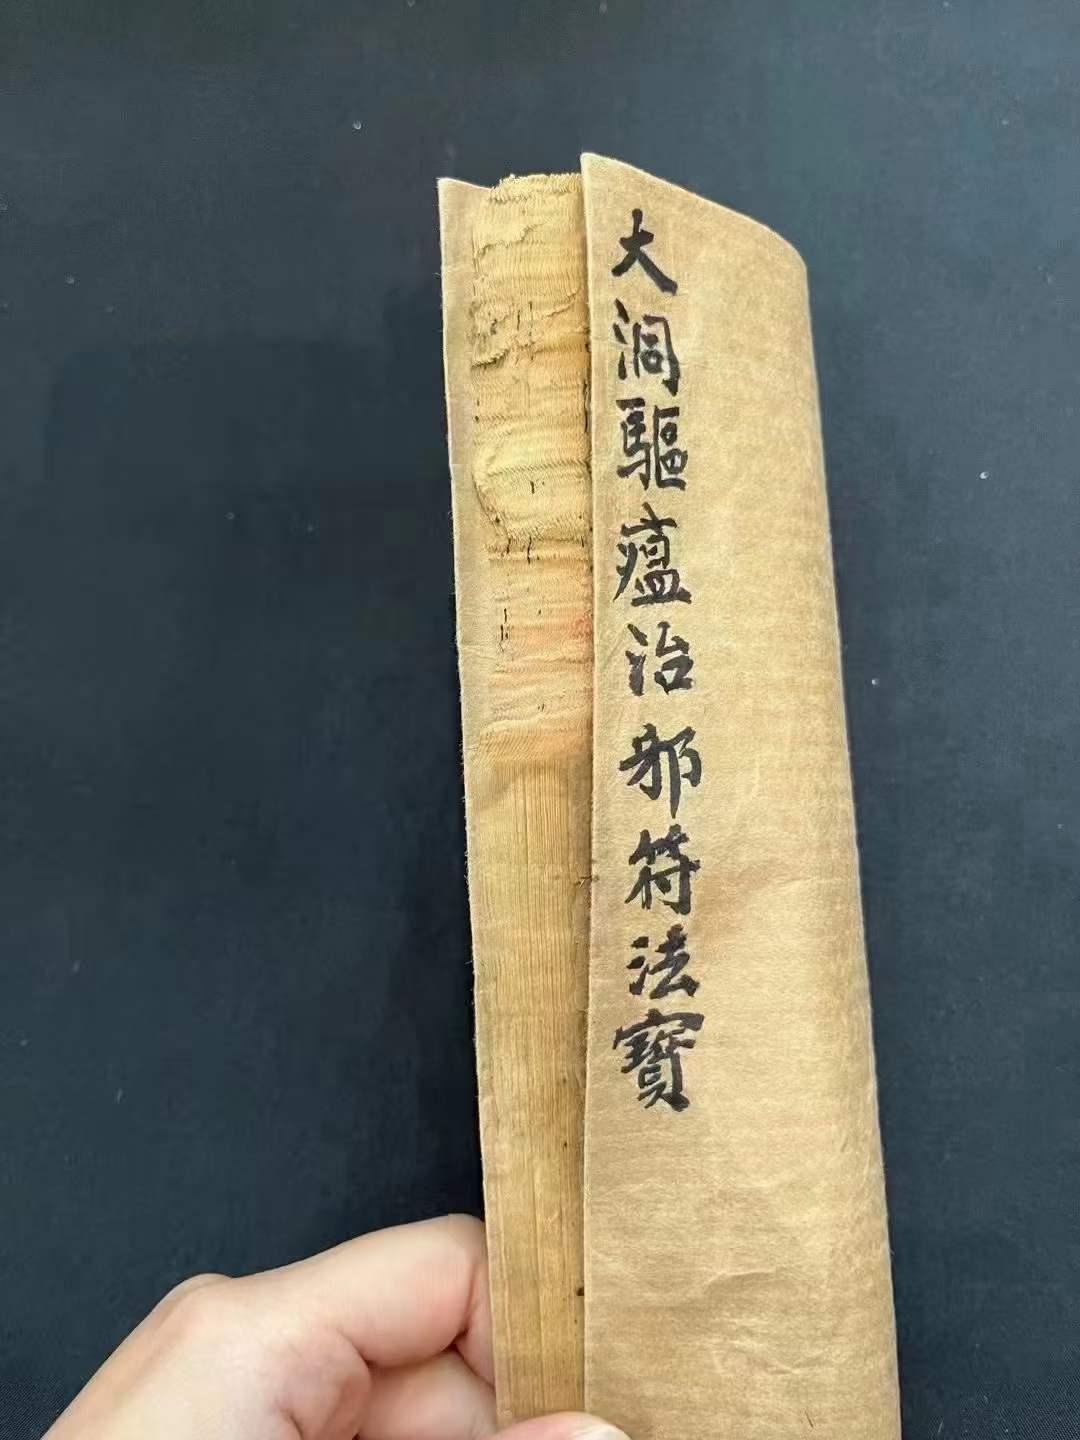 大洞驅瘟治邪符法寶